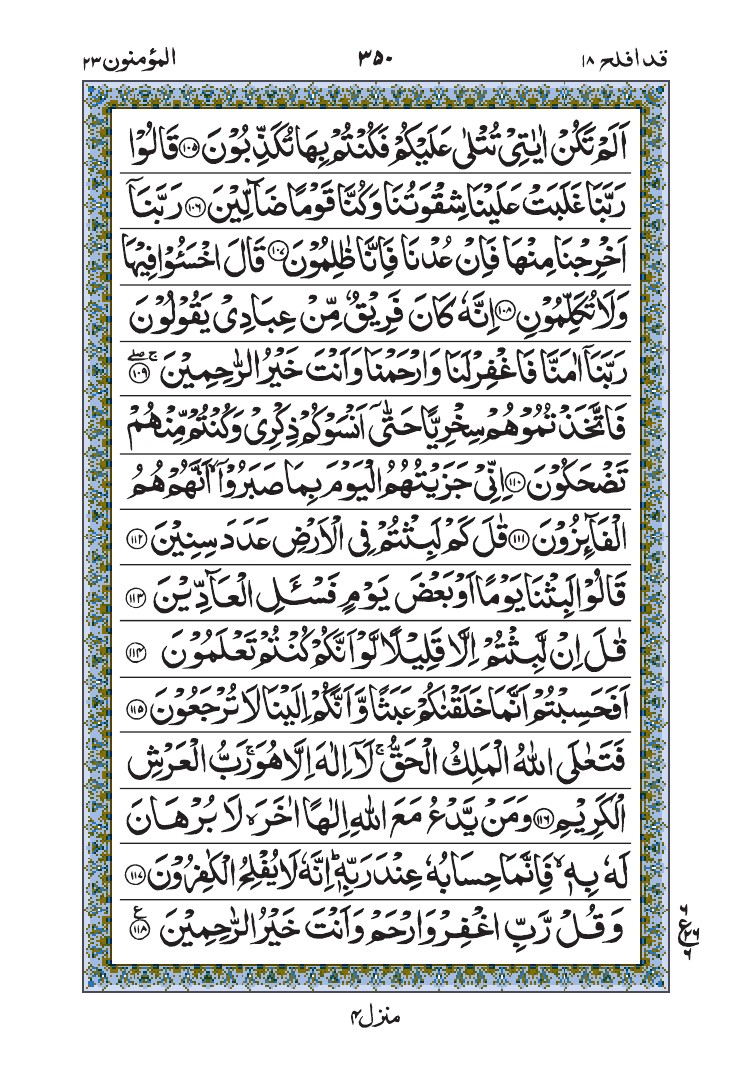 قد افلح ١٨ ٣٥٠ المؤمنون ٢٣
اَلَمْ تَكُنْ اٰيٰتِىْ تُتْلٰى عَلَيْكُمْ فَكُنْتُمْ بِهَا تُكَذِّبُوْنَ ﴿١٠٥﴾ قَالُوْا
رَبَّنَا غَلَبَتْ عَلَيْنَا شِقْوَتُنَا وَكُنَّا قَوْمًا ضَآلِّيْنَ ﴿١٠٦﴾ رَبَّنَاۤ
اَخْرِجْنَا مِنْهَا فَاِنْ عُدْنَا فَاِنَّا ظٰلِمُوْنَ ﴿١٠٧﴾ قَالَ اخْسَـُٔوْا فِيْهَا
وَلَا تُكَلِّمُوْنِ ﴿١٠٨﴾ اِنَّهٗ كَانَ فَرِيْقٌ مِّنْ عِبَادِىْ يَقُوْلُوْنَ
رَبَّنَاۤ اٰمَنَّا فَاغْفِرْ لَنَا وَارْحَمْنَا وَاَنْتَ خَيْرُ الرّٰحِمِيْنَ ۚۖ ﴿١٠٩﴾
فَاتَّخَذْتُمُوْهُمْ سِخْرِيًّا حَتّٰۤى اَنْسَوْكُمْ ذِكْرِىْ وَكُنْتُمْ مِّنْهُمْ
تَضْحَكُوْنَ ﴿١١٠﴾ اِنِّىْ جَزَيْتُهُمُ الْيَوْمَ بِمَا صَبَرُوْۤا ۙ اَنَّهُمْ هُمُ
الْفَآئِزُوْنَ ﴿١١١﴾ قٰلَ كَمْ لَبِثْتُمْ فِى الْاَرْضِ عَدَدَ سِنِيْنَ ﴿١١٢﴾
قَالُوْا لَبِثْنَا يَوْمًا اَوْ بَعْضَ يَوْمٍ فَسْـَٔلِ الْعَآدِّيْنَ ﴿١١٣﴾
قٰلَ اِنْ لَّبِثْتُمْ اِلَّا قَلِيْلًا لَّوْ اَنَّكُمْ كُنْتُمْ تَعْلَمُوْنَ ﴿١١٤﴾
اَفَحَسِبْتُمْ اَنَّمَا خَلَقْنٰكُمْ عَبَثًا وَّاَنَّكُمْ اِلَيْنَا لَا تُرْجَعُوْنَ ﴿١١٥﴾
فَتَعٰلَى اللّٰهُ الْمَلِكُ الْحَقُّ ۚ لَاۤ اِلٰهَ اِلَّا هُوَ ۚ رَبُّ الْعَرْشِ
الْكَرِيْمِ ﴿١١٦﴾ وَمَنْ يَّدْعُ مَعَ اللّٰهِ اِلٰهًا اٰخَرَ ۙ لَا بُرْهَانَ
لَهٗ بِهٖ ۙ فَاِنَّمَا حِسَابُهٗ عِنْدَ رَبِّهٖ ؕ اِنَّهٗ لَا يُفْلِحُ الْكٰفِرُوْنَ ﴿١١٧﴾
وَقُلْ رَّبِّ اغْفِرْ وَارْحَمْ وَاَنْتَ خَيْرُ الرّٰحِمِيْنَ ﴿١١٨﴾ ع
٦
ع ٢٦
٦
منزل ۴